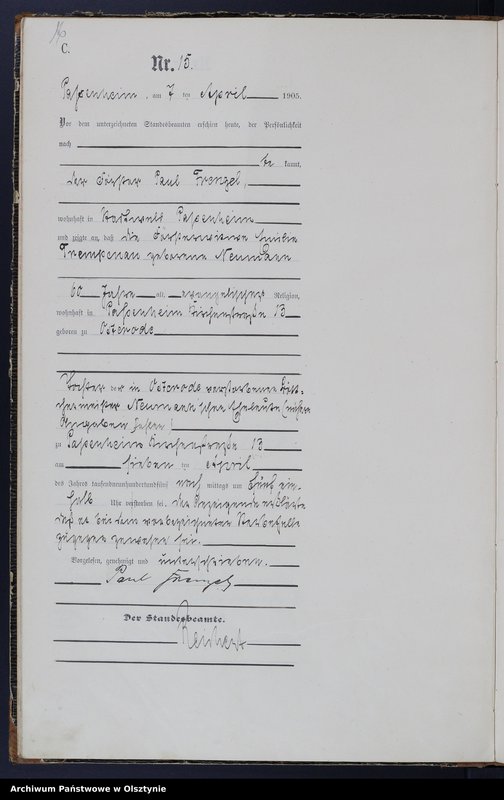 C.
Nr. 15.
Passenheim, am 7 ten April 1905.
Vor dem unterzeichneten Standesbeamten erschien heute, der Persönlichkeit
nach
be kannt,
der Förster Paul Frenzel,
wohnhaft in Stadtwald Passenheim
und zeigte an, daß die Försterwitwe
geborene Neumann
60 Jahre alt, evangelischer Religion,
wohnhaft in Passenheim Kirchenstraße 13
geboren zu Osterode
Tochter der in Osterode verstorbenen
Neumann'schen Eheleute
Angaben fehlen)
zu Passenheim Kirchenstraße 13
am sieben ten April
des Jahres tausendneunhundertundfünf nach mittags um fünf ein
halb Uhr verstorben sei. Der Anzeigende erklärte
daß er bei dem vorbezeichneten Sterbefalle
zugegen gewesen sei.
Vorgelesen, genehmigt und unterschrieben.
Paul Frenzel
Der Standesbeamte.
Archiwum Państwowe w Olsztynie